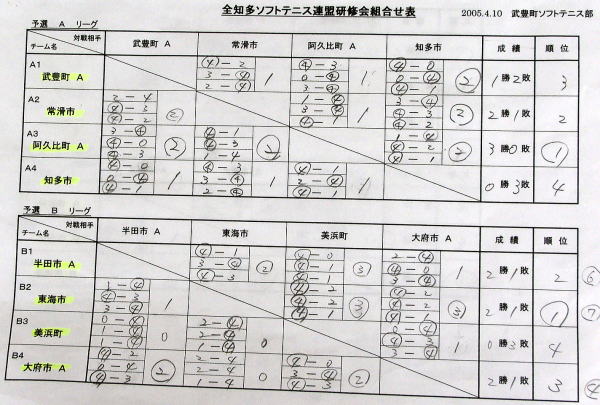 全知多ソフトテニス連盟研修会組合せ表
2005.4.10 武豊町ソフトテニス部
予選 A リーグ
対戦相手 チーム名 武豊町 A 常滑市 阿久比町 A 知多市 成績 順位
A1 武豊町 A 1勝2敗 3
④-2 ④-3 ④-0
3-④ 0-④ 0-④
2-④ 3-④ ④-1
1 1 ②
A2 常滑市 2勝1敗 2
2-4 1-④ 3-④
④-3 3-④ ④-3
④-2 ④-1 ④-2
② 1 ②
A3 阿久比町 A 3勝0敗 ①
3-④ ④-1 1-④
④-0 ④-3 ④-2
④-3 1-4 ④-1
② ② ②
A4 知多市 0勝3敗 4
④-3 ④-1
0-④ 3-④ 2-④
④-1 2-④ ④-1
1 1 1
予選 B リーグ
対戦相手 チーム名 半田市 A 東海市 美浜町 大府市 A 成績 順位
B1 半田市 A 2勝1敗 2 ⑥
④-1 ④-0 2-④
3-④ ④-1 ④-0
④-3 ④-1 3-④
② ③ 1
B2 東海市 2勝1敗 ① ⑦
1-④ ④-2 ④-2
④-3 ④-2 ④-2
3-④ ④-1 ④-1
1 ③ ③
B3 美浜町 0勝3敗 4
0-④ 2-④ 0-④
1-④ 2-④ ④-3
1-④ 1-④ 3-④
0 0 1
B4 大府市 A 2勝1敗 3 ④
④-2 2-4 ④-0
0-4 2-4 3-④
④-3 1-4 ④-3
② 0 ②